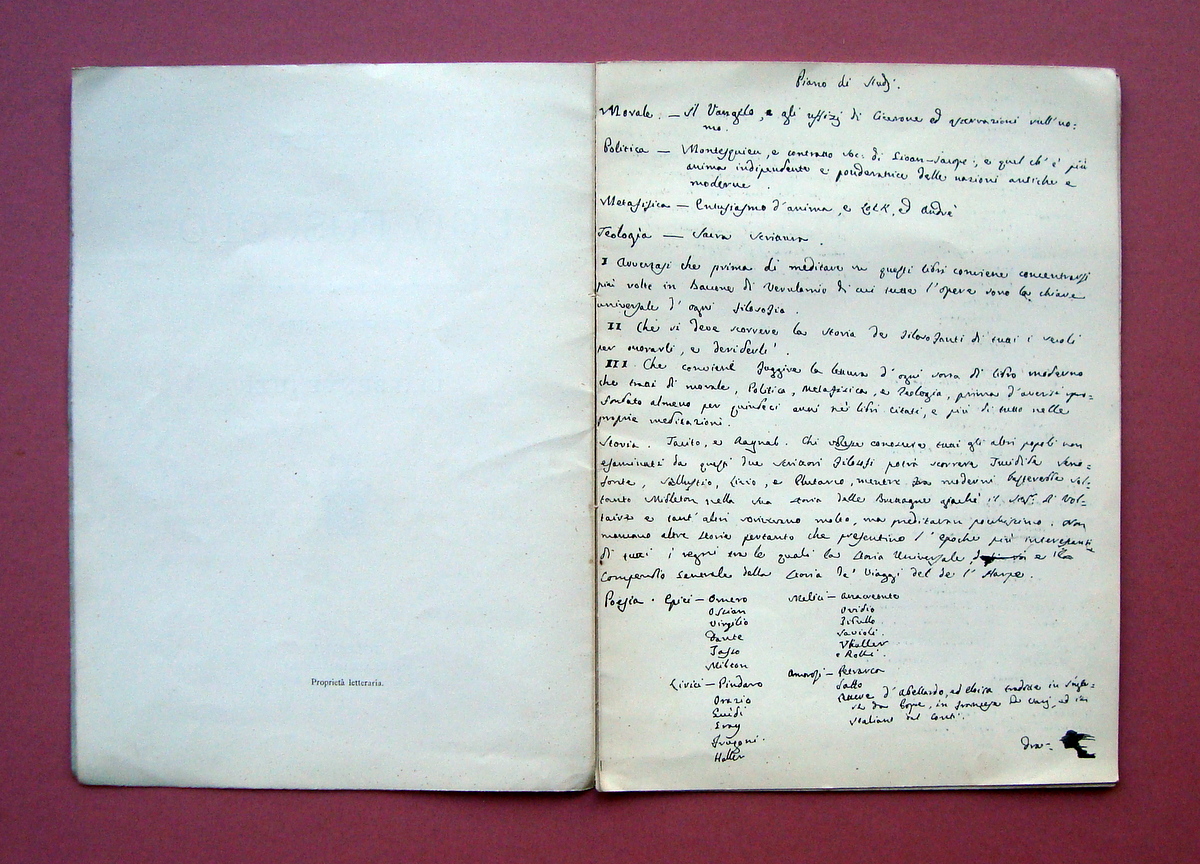 Proprietà letteraria.
Piano di Studj.
Morale. — Il Vangelo, e gli uffizj di Cicerone ed osservazioni sull'uo:
mo.
Politica — Montesquieu, e contratto soc: di Gioan-Jacope:, e quel ch'è più
anima indipendente e ponderatrice delle nazioni antiche e
moderne.
Metafisica — Entusiasmo d'anima, e Lock, ed André
Teologia — Sacra Scrittura.
I Avvertasi che prima di meditare su questi libri conviene concentrarsi
più volte in Bacone di Verulamio di cui tutte l'opere sono la chiave
universale d'ogni filosofia.
II Che si deve scorrere la storia de filosofanti di tutti i secoli
per onorarli, e deriderli.
III Che conviene fuggire la lettura d'ogni sorta di libro moderno
che tratti di morale, Politica, Metafisica, e Teologia, prima d'aversi pro:
fondato almeno per quindeci anni nè libri citati, e più di tutto nelle
proprie meditazioni.
Storia. Tacito, e Raynal. Chi volesse conoscere tutti gli altri popoli non
esaminati da questi due scrittori filosofi potrà scorrere Tucidide Seno:
fonte, Sallustio, Livio, e Plutarco, mentre tra moderni basterebbe sol:
tanto Midleton nella sua storia delle Brettagne giacchè il Sigr. di Vol:
taire e tant'altri scrivevano molto, ma meditavan pochissimo. Non
mancano altre storie pertanto che presentino l'epoche più interessanti
di tutti i regni tra le quali la Storia Universale, e il
Compendio Generale della Storia de' Viaggi del de l'Harpe.
Poesia. Epici — Omero
Ossian
Virgilio
Dante
Tasso
Milton
Lirici — Pindaro
Orazio
Guidi
Gray
Frugoni.
Haller
Melici — Anacreonte
Ovidio
Tibullo
Savioli.
Waller
e Rolli.
Amorosi — Petrarca
Saffo
Lettere d'Abellardo, ed Eloisa tradotte in ingle:
se da Pope, in francese da, ed in
italiano dal Conti.
Dra: